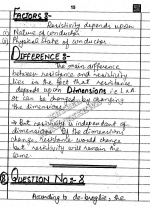 FACTORS:-
Resistivity depends upon
(i) Nature of conductor
(ii) Physical state of conductor.
DIFFERENCE:-
The main difference
between resistance and resistivity
lies in the fact that resistance
depends upon Dimensions i.e L & A.
It can be changed by changing
the dimensions.
→ But resistivity is independent of
dimensions. If the dimensions
change, resistance would change
but resistivity will remain the
same.
QUESTION NO:- 8
According to de-broglie, the